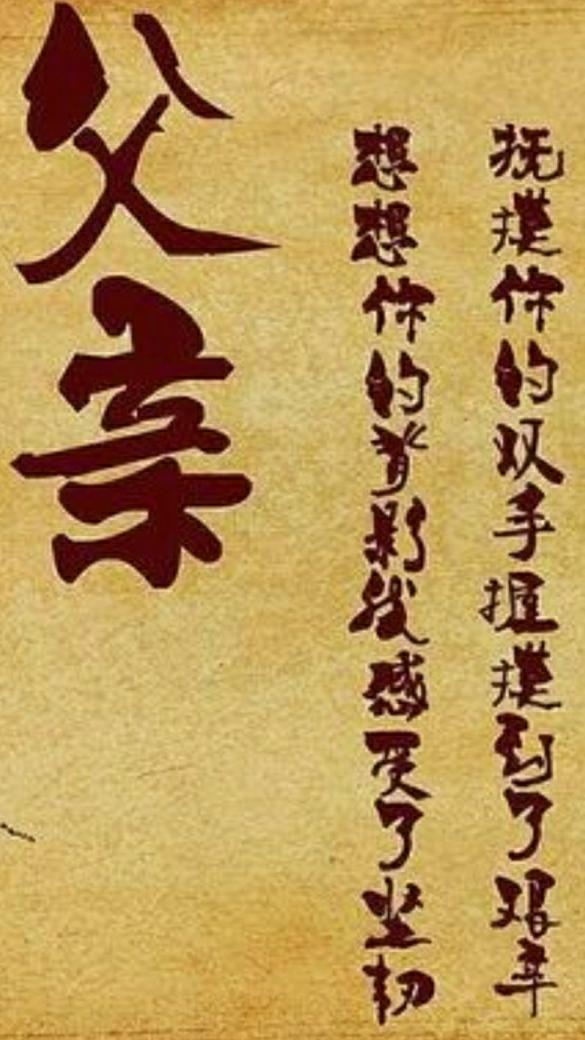 父亲
想想你的背影我感受了坚韧
抚摸你的双手握摸到了艰辛